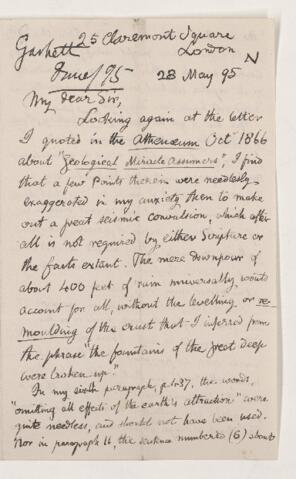 25 Claremont Square
London
N
28 May 95
June/95
My dear Sir,
Looking again at the letter
I quoted in the Athenæum Oct 1866
about "Geological Miracle Assumers", I find
that a few points therein were needlessly
exaggerated in my anxiety then to make
out a great seismic convulsion, which after
all is not required by either Scripture or
the facts extant. The mere downpour of
about 400 feet of rain universally would
account for all, without the levelling or re-
moulding of the crust that I inferred from
the phrase "the fountains of the great deep
were broken up."
In my sixth paragraph, p.437, the words,
"omitting all effects of the earth's attraction" were
quite needless, and should not have been used.
Nor in paragraph 11, the sentence numbered (6) about